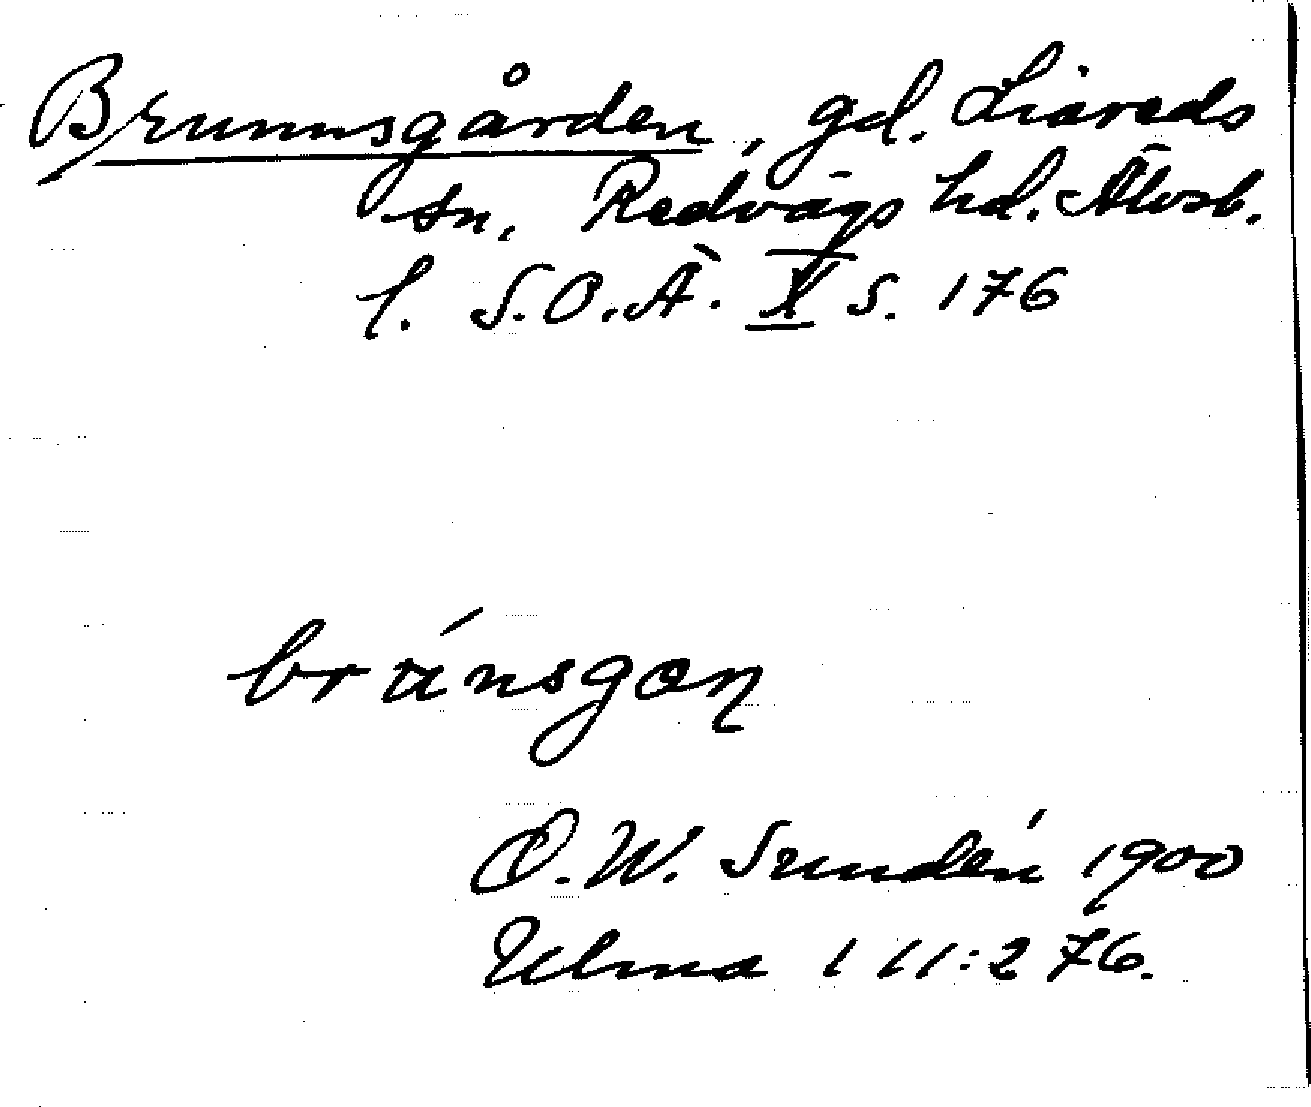 Brunnsgården, gd. Liareds
sn, Redvägs hd. Älvsb.
l. S.O.Ä. X s. 176
bránsgaŋ
O.W. Sundén 1900
Ulma 111:276.